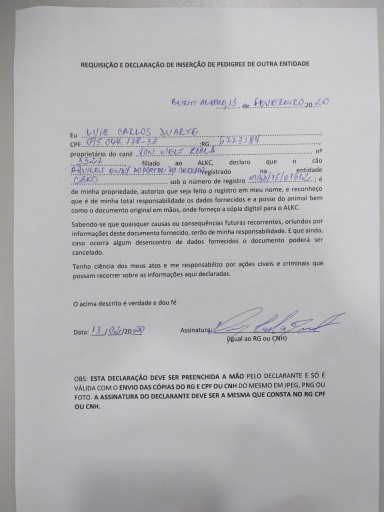 REQUISIÇÃO E DECLARAÇÃO DE INSERÇÃO DE PEDIGREE DE OUTRA ENTIDADE
13 de FEVEREIRO 2020
Eu LUIE CARLOS DUARTE
CPF RG 6223184
proprietário do canil nº
3327 filiado ao ALKC, declaro que o cão
registrado na entidade
sob o número de registro é
de minha propriedade, autorizo que seja feito o registro em meu nome, e reconheço
que é de minha total responsabilidade os dados fornecidos e a posse do animal bem
como o documento original em mãos, onde forneço a cópia digital para o ALKC.
Sabendo-se que quaisquer causas ou consequências futuras recorrentes, oriundos por
informações deste documento fornecido, serão de minha responsabilidade. E que ainda,
caso ocorra algum desencontro de dados fornecidos o documento poderá ser
cancelado.
Tenho ciência dos meus atos e me responsabilizo por ações cíveis e criminais que
possam recorrer sobre as informações aqui declaradas.
O acima descrito é verdade e dou fé
Data: 13/02/2020 Assinatura:
(Igual ao RG ou CNH)
OBS: ESTA DECLARAÇÃO DEVE SER PREENCHIDA A MÃO PELO DECLARANTE E SÓ É
VÁLIDA COM O ENVIO DAS CÓPIAS DO RG E CPF OU CNH DO MESMO EM JPEG, PNG OU
FOTO. A ASSINATURA DO DECLARANTE DEVE SER A MESMA QUE CONSTA NO RG CPF
OU CNH.